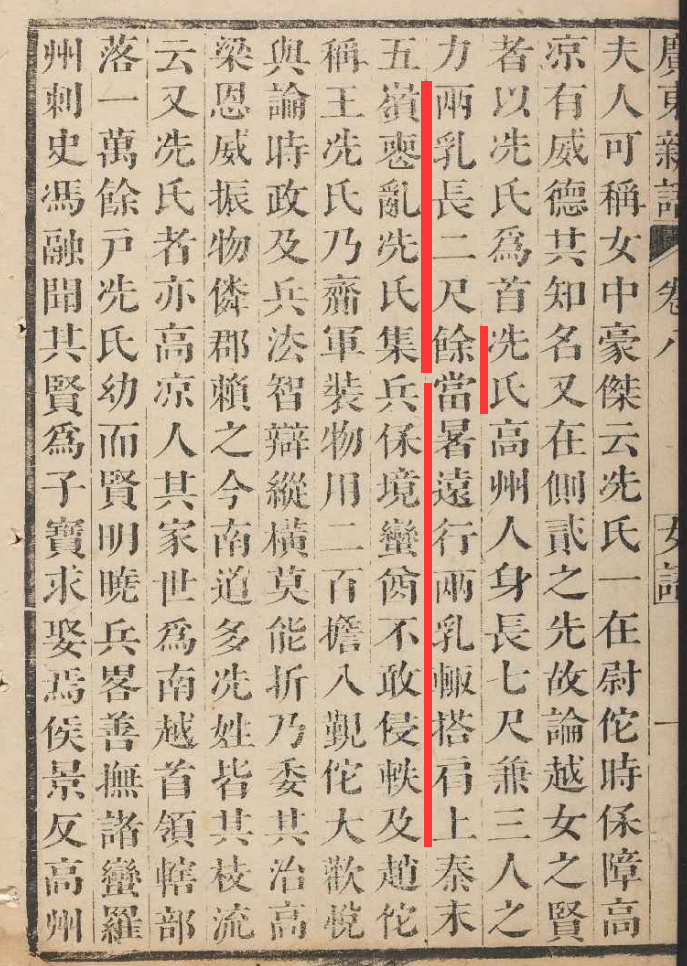 廣東新語 卷八 女語 一
夫人可稱女中豪傑云冼氏一在尉佗時保障高
凉有威德其知名又在側貳之先故論越女之賢
者以冼氏爲首冼氏高州人身長七尺兼三人之
力兩乳長二尺餘當暑遠行兩乳輙搭肩上秦末
五嶺喪亂冼氏集兵保境蠻酋不敢侵軼及趙佗
稱王冼氏乃齎軍裝物用二百擔入覲佗大歡悅
與論時政及兵法智辯縱橫莫能折乃委其治高
梁恩威振物憐郡賴之今南道多冼姓皆其枝流
云又冼氏者亦高凉人其家世爲南越首領轄部
落一萬餘戸冼氏幼而賢明曉兵畧善撫諸蠻羅
州刺史馮融聞其賢爲子寶求娶焉侯景反高州